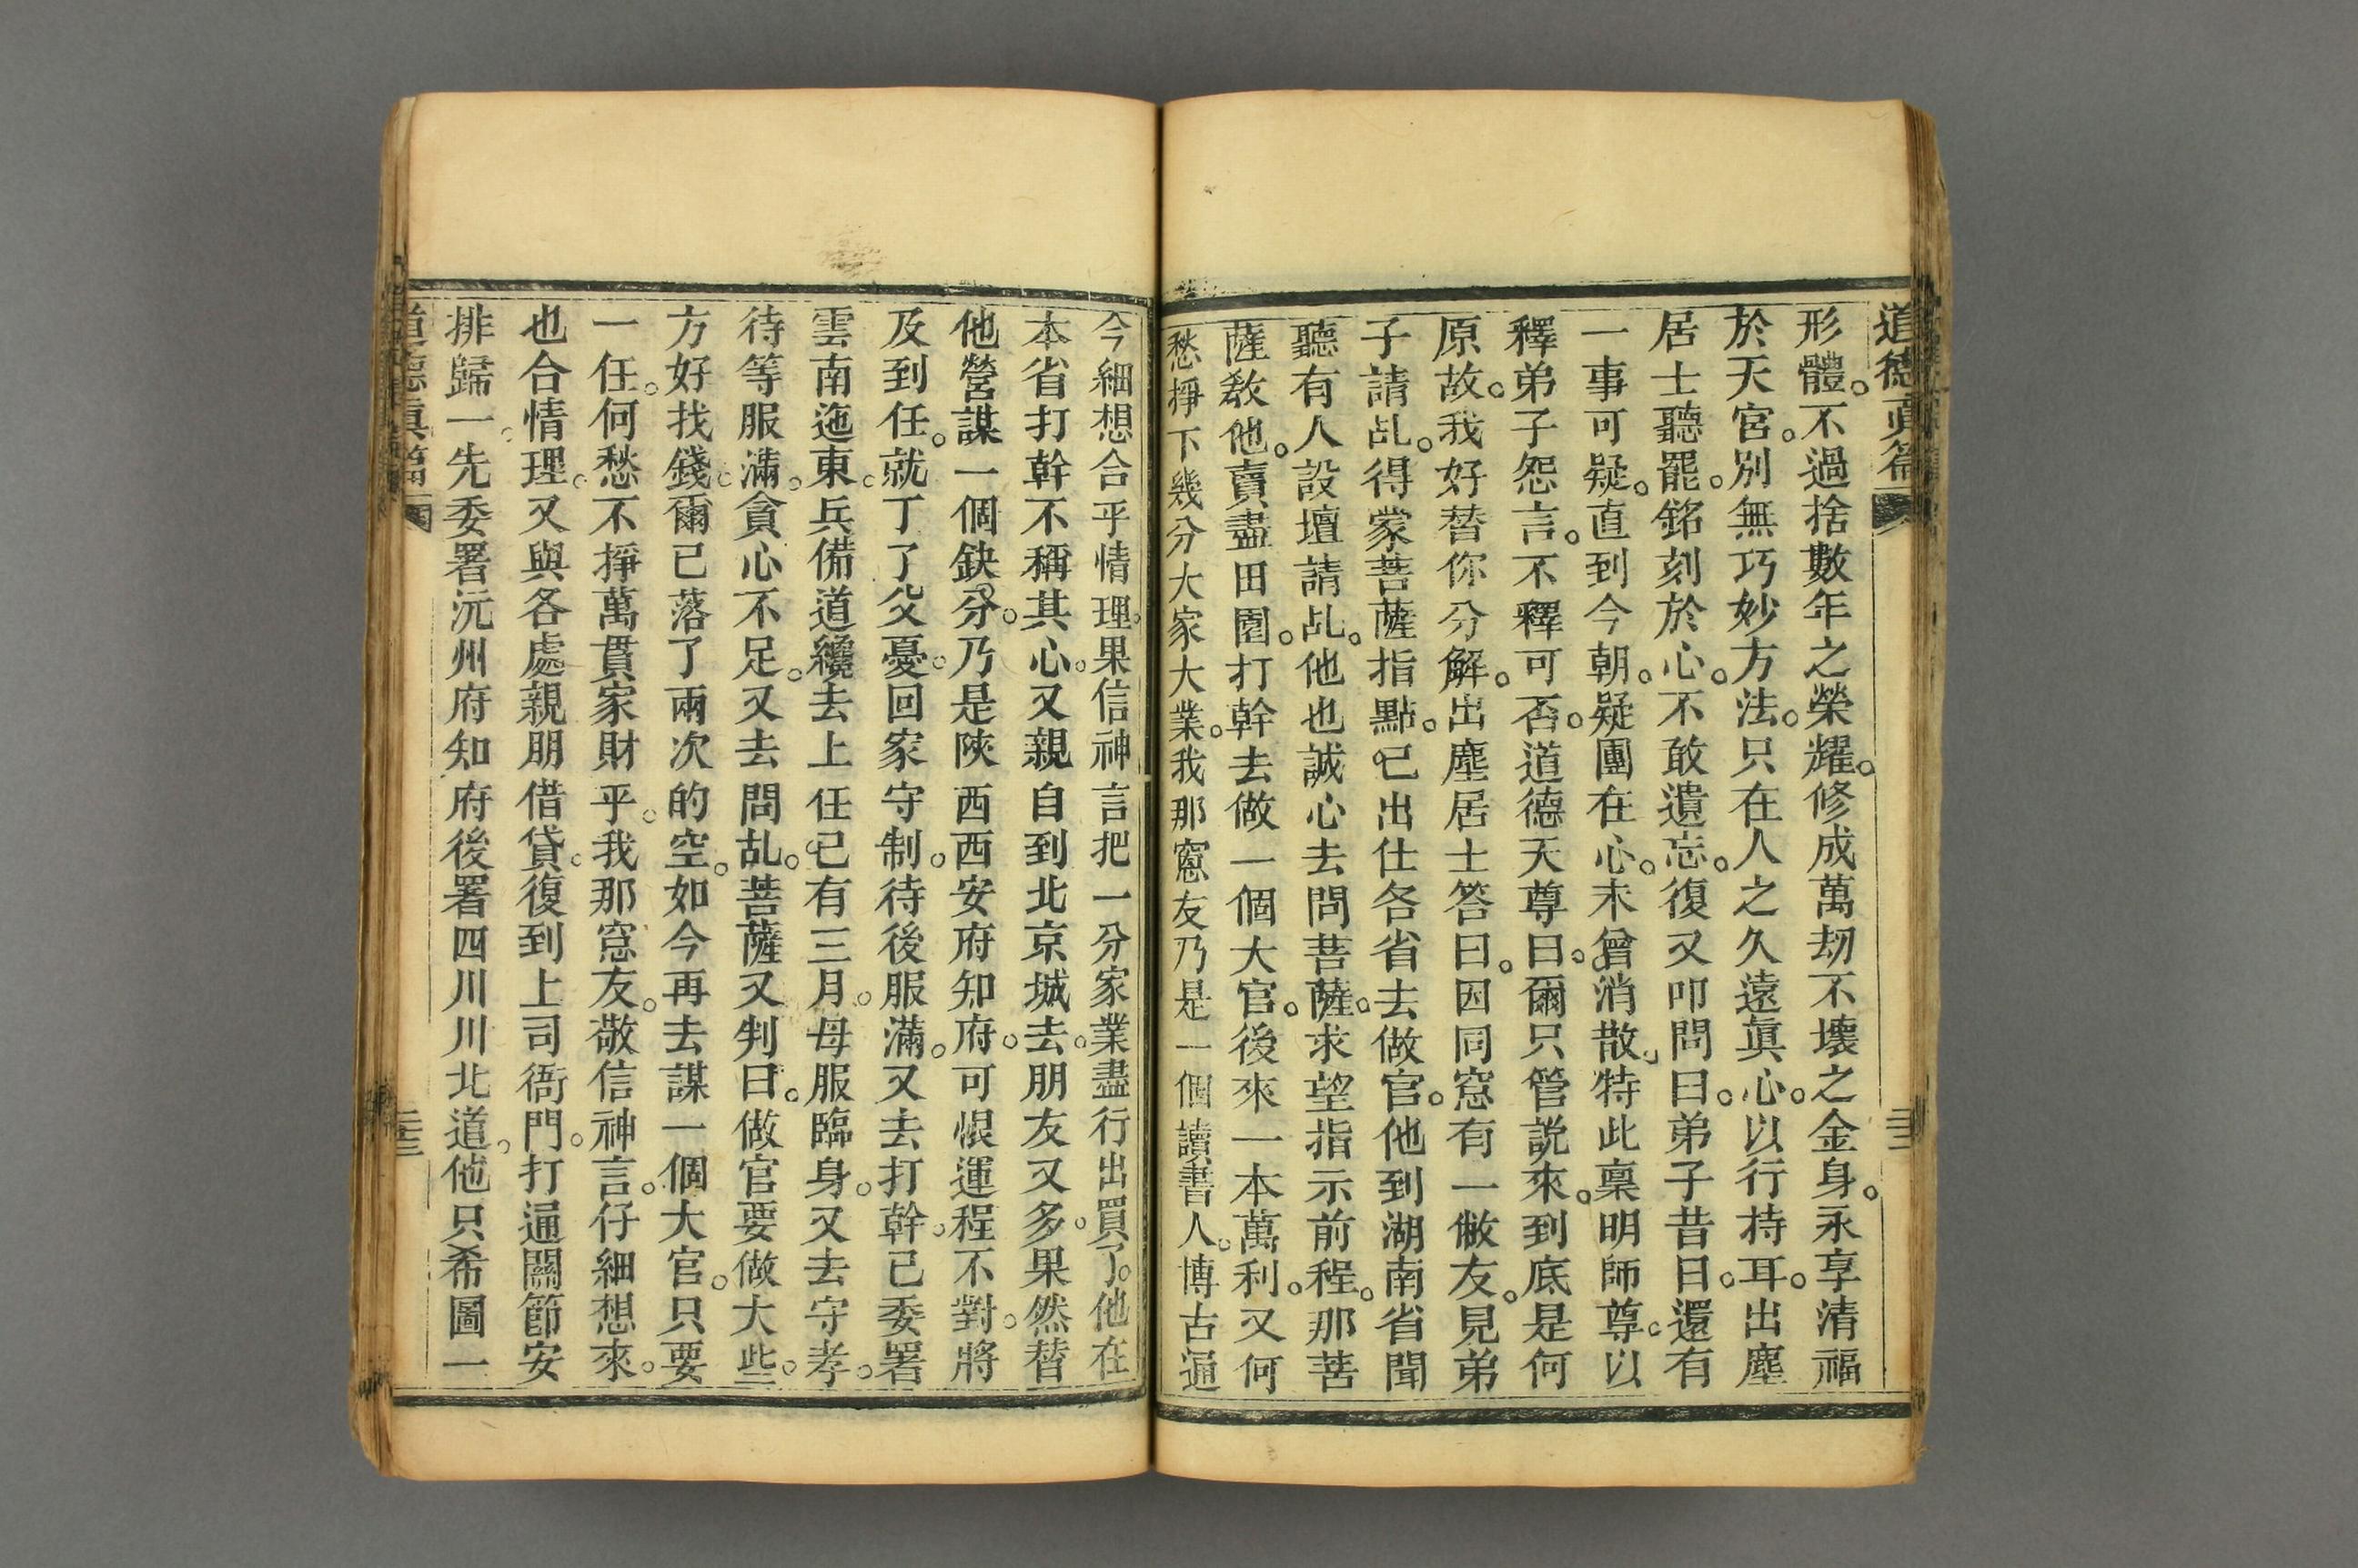 道德眞篇
形體。不過捨數年之榮耀。修成萬刼不壞之金身。永享清福
於天宮。別無巧妙方法。只在人之久遠眞心。以行持耳。出塵
居士聽罷。銘刻於心。不敢遺忘。復又叩問曰。弟子昔日。還有
一事可疑。直到今朝。疑團在心。未曾消散。特此稟明師尊。以
釋弟子怨言。不釋可否。道德天尊曰。爾只管說來。到底是何
原故。我好替你分解。出塵居士答曰。因同窓有一儆友。見弟
子請乩。得蒙菩薩指點。已出仕各省去做官。他到湖南省聞
聽有人設壇請乩。他也誠心去問菩薩。求望指示前程。那菩
薩教他。賣盡田園。打幹去做一個大官。後來一本萬利。又何
愁掙下幾分大家大業。我那窓友乃是一個讀書人。博古通
今細想合乎情理。果信神言把一分家業盡行出買了。他在
本省打幹不稱其心。又親自到北京城去。朋友又多。果然替
他營謀一個鈌分。乃是陝西西安府知府。可恨運程不對。將
及到任。就丁了父憂。回家守制。待後服滿。又去打幹。已委署
雲南迤東。兵備道纔去上任。已有三月。母服臨身。又去守孝。
待等服滿。貪心不足。又去問乱。菩薩又判曰。做官要做大些。
方好找錢。爾已落了兩次的空。如今再去謀一個大官。只要
一任。何愁不掙萬貫家財乎。我那窓友。敬信神言。仔細想來。
也合情理。又與各處親朋借貸。復到上司衙門。打通關節安
排歸一。先委署沅州府知府後署四川川北道。他只希圖一
道德眞篇